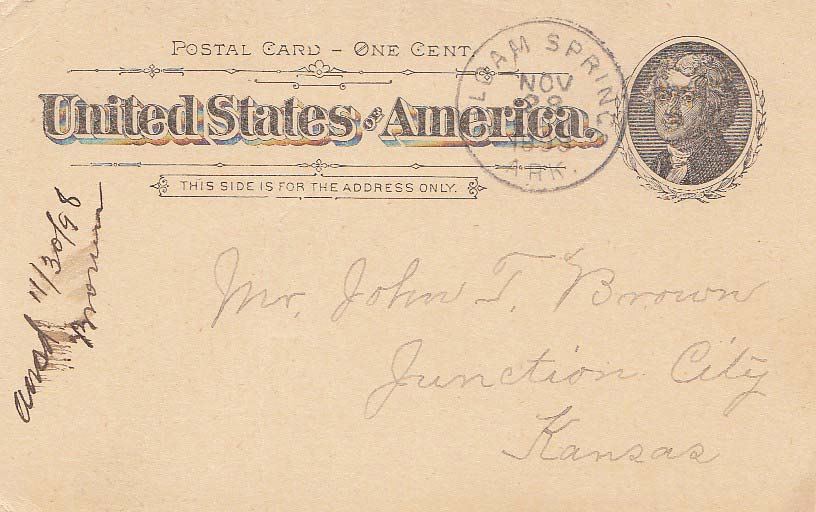 POSTAL CARD – ONE CENT.
United States OF America.
THIS SIDE IS FOR THE ADDRESS ONLY.
LOAM SPRINGS
NOV
ARK.
Ansd 11/30/98
Brown
Mr. John T. Brown
Junction City
Kansas